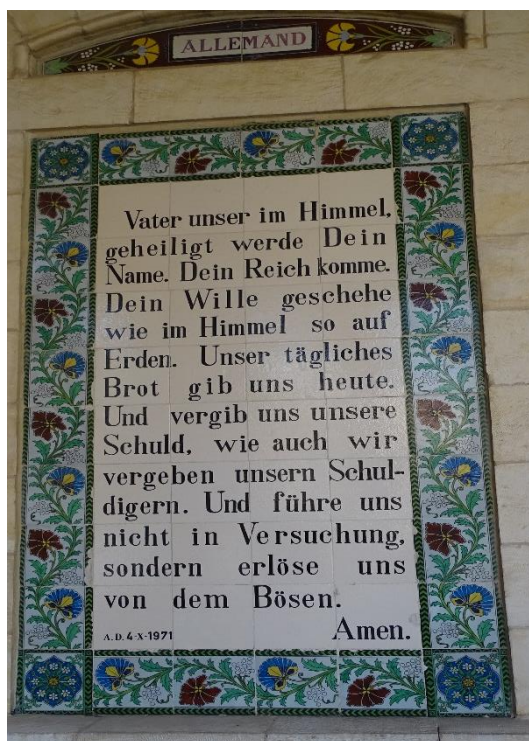 ALLEMAND
Vater unser im Himmel,
geheiligt werde Dein
Name. Dein Reich komme.
Dein Wille geschehe
wie im Himmel so auf
Erden. Unser tägliches
Brot gib uns heute.
Und vergib uns unsere
Schuld, wie auch wir
vergeben unsern Schul-
digern. Und führe uns
nicht in Versuchung,
sondern erlöse uns
von dem Bösen.
A.D. 4-X-1971 Amen.